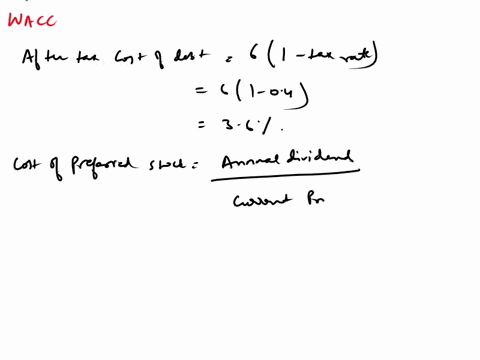 WACC
After tax cost of debt = 6 (1 - tax rate)
= 6 (1-0.4)
= 3.6%.
Cost of Preferred stock = Annual dividend
Current Pr